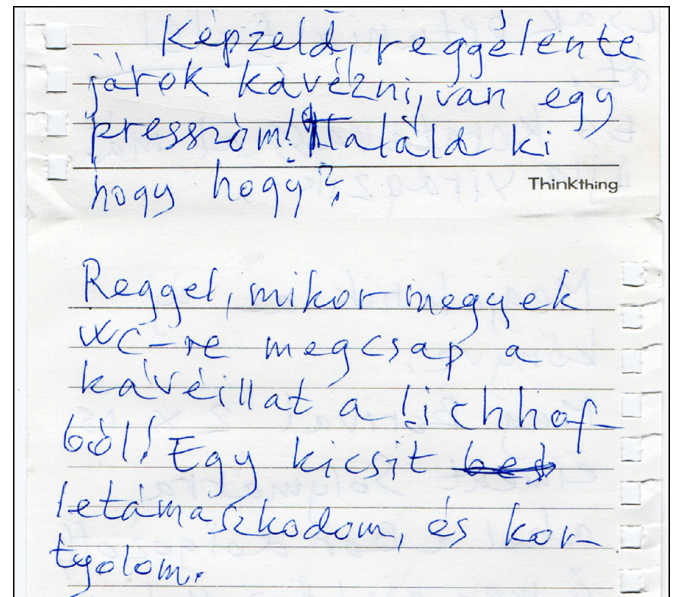 Képzeld, reggelente
járok kávézni, van egy
presszóm! Találd ki
hogy hogy?
Thinkthing
Reggel, mikor megyek
WC-re megcsap a
kávéillat a lichhof-
ból! Egy kicsit
letámaszkodom, és kor-
tyolom.